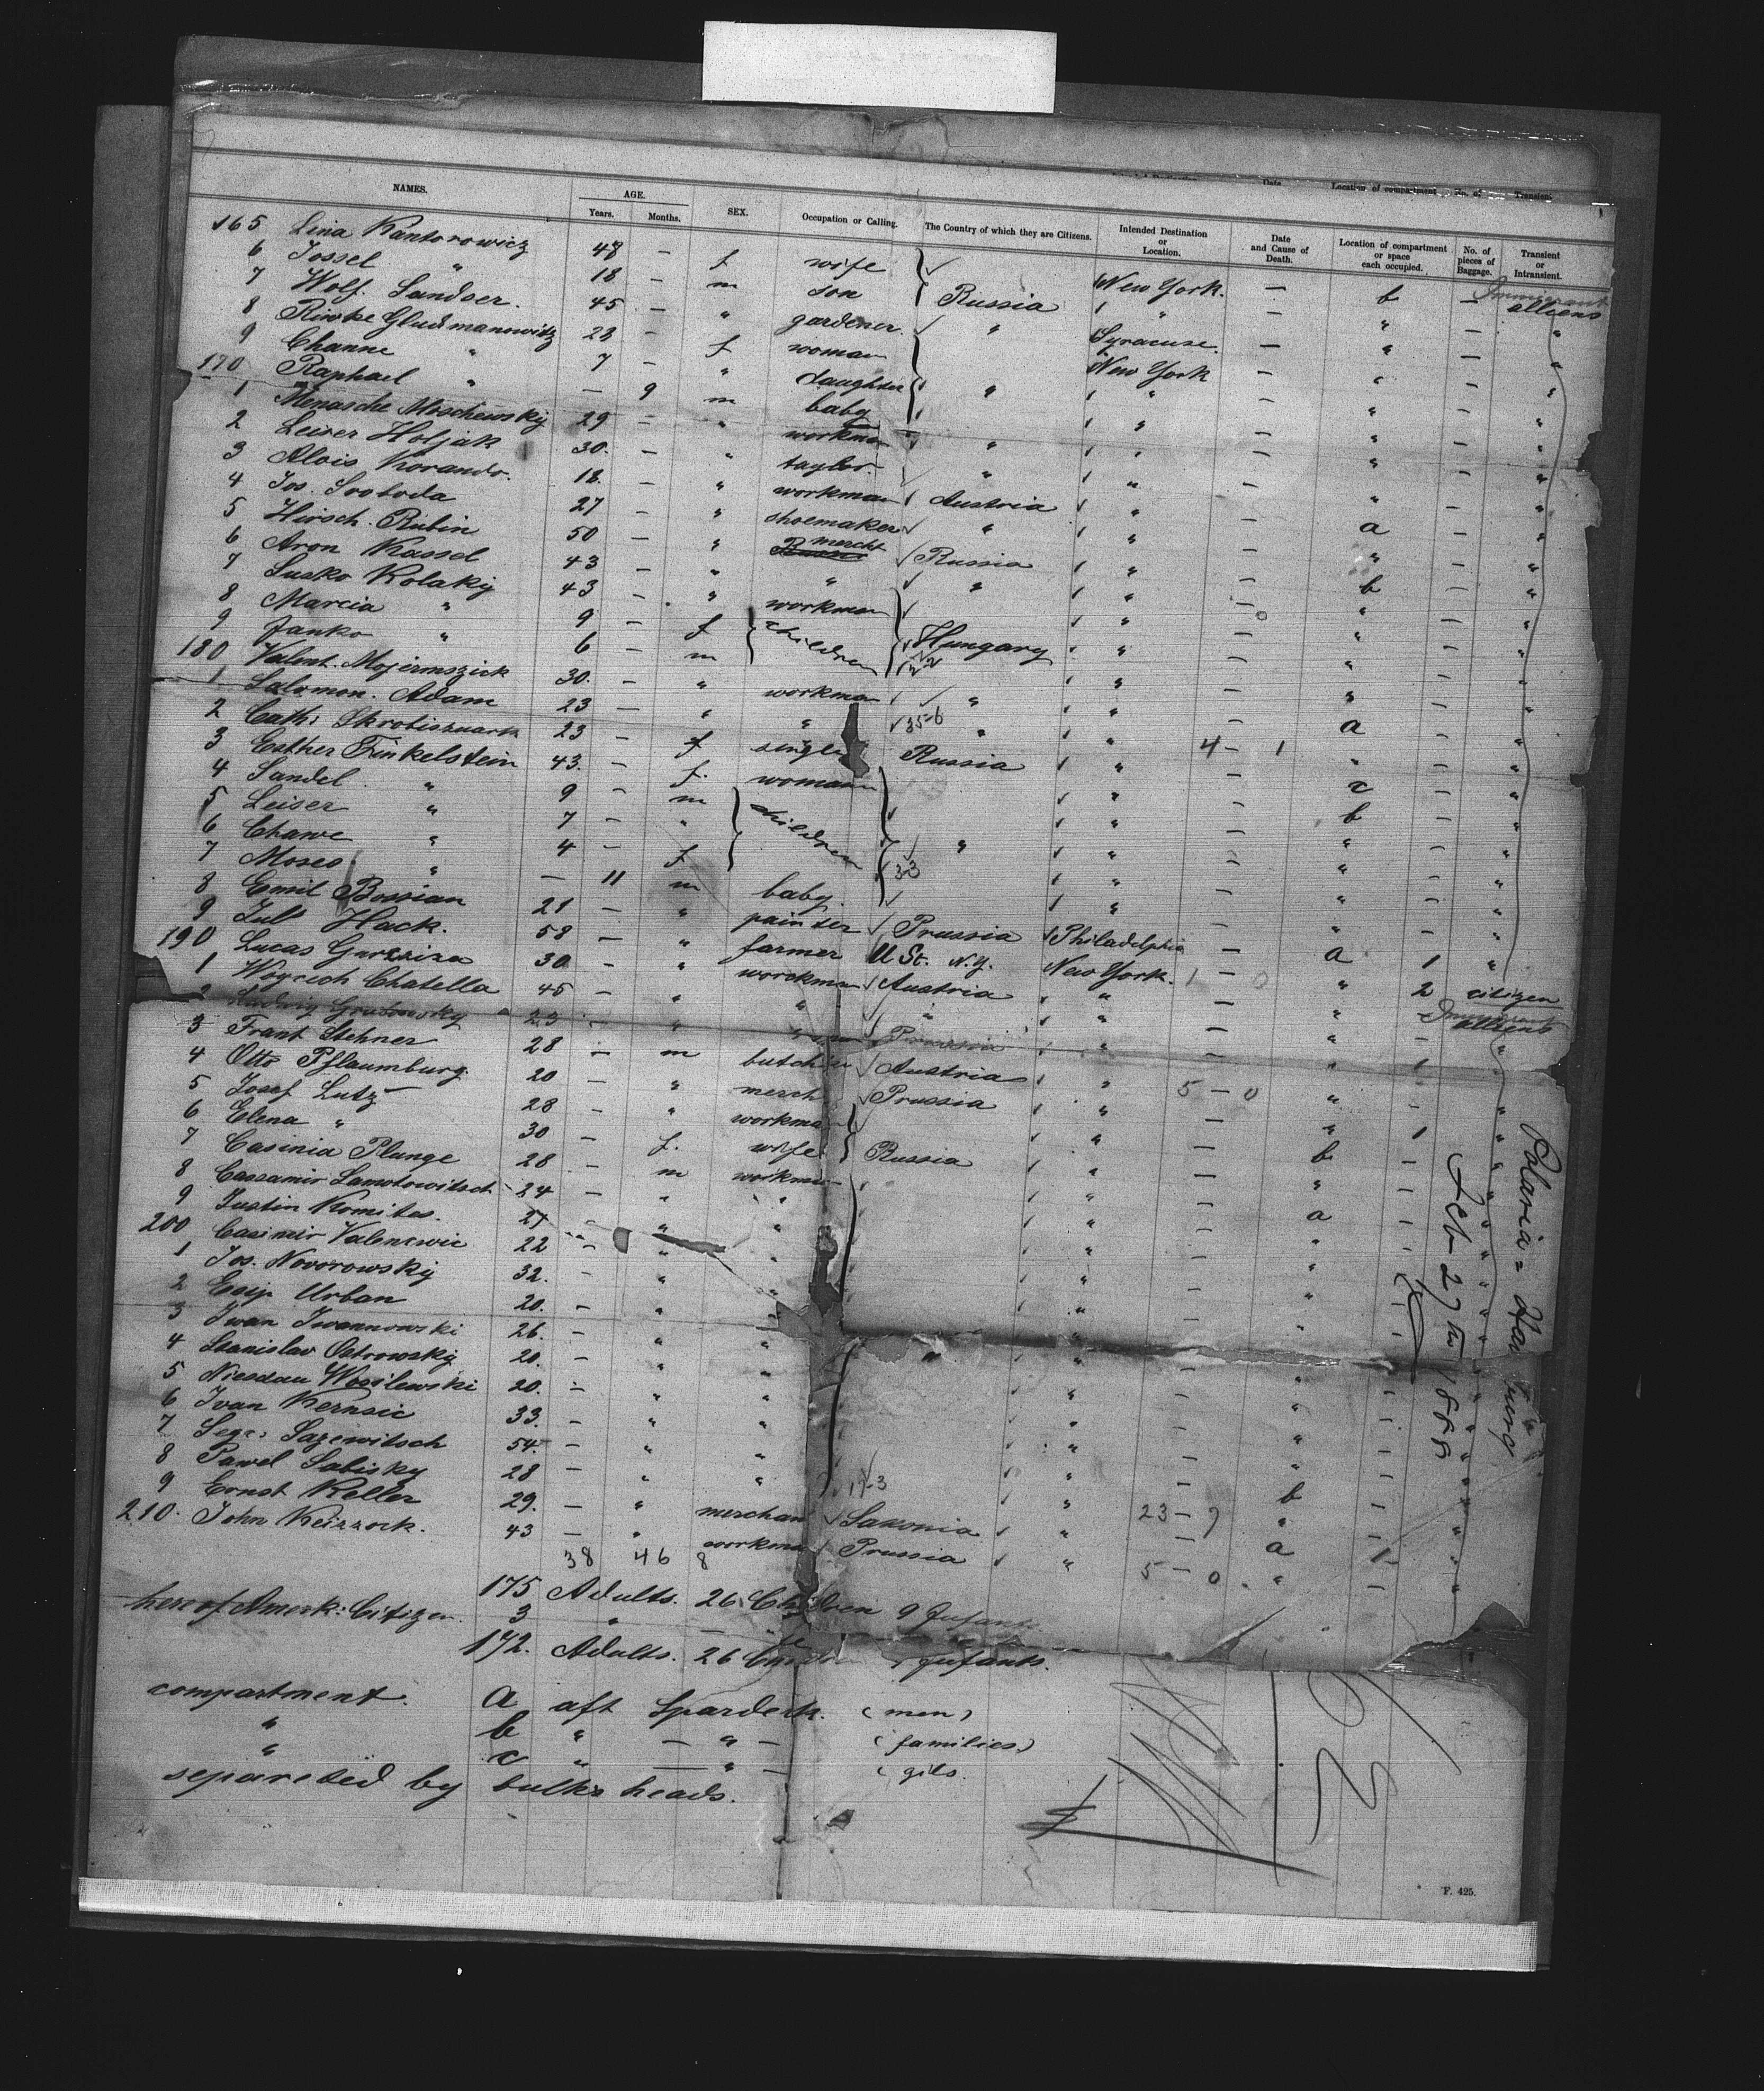 NAMES. AGE. Years. Months. SEX. Occupation or Calling. The Country of which they are Citizens. Intended Destination or Location. Date and Cause of Death. Location of compartment or space each occupied. No. of pieces of Baggage. Transient or Intransient.
165 Lina Kantorowicz 48 — f wife New York. — b — Immigrant alliens
6 Jossel " 18 — m son Russia " — " — "
7 Wolf. Sandser. 45 — " gardener. " Syracuse. — " —
8 Riwke Gludmanowitz 22 — f woman New York — " — "
9 Channe " 7 — " daughter " " — " — "
170 Raphael " — 9 m baby " — " — "
1 Menasche Moschewsky 29 — " workman " " — " — "
2 Leiser Holjak 30. — " taylor. " " — " — "
3 Alois Korando. 18. — " workman Austria " — a — "
4 Jos. Svoboda 27 — " shoemaker " " — " — "
5 Hirsch. Rubin 50 — " mercht Russia " — b — "
6 Aron Kassel 43 — " " " " — " — "
7 Susko Kolaky 43 — " workman " — " — "
8 Marcia " 9 — f children Hungary " — " — "
9 Janko " 6 — m " — " — "
180 Valent. Mojermszick 30. — " workman " " — a — "
1 Salomon. Adam 23 — " " 35-6 " " 4 — 1 " — "
2 Cath. Skrobiszuark 23 — f single Russia " — c — "
3 Esther Finkelstein 43. — f. woman " — b — "
4 Sandel " 9 — m children " — " — "
5 Leiser " 7 — " " " — " — "
6 Chawe " 4 — f 3-3 " — " — "
7 Moses " — 11 m baby. " — " — "
8 Emil Bossian 21 — " painter Prussia Philadelphia — a 1 "
9 Jul. Hack. 58 — " farmer U St. N.Y. New York. 1 — 0 " 2 citizen
190 Lucas Gurssiza 30 — " workman Austria " — " — Immigrant alliens
1 Woycech Chatella 45 — " " " " — " — "
2 Ludwig Grabowsky 23 — " " Prussia " — " 1 "
3 Frant Stehner 28 — m butcher Austria " 5 — 0 " — "
4 Otto Pflaumburg. 20 — " merch. Prussia " — " 1 "
5 Josef Lutz 28 — " workman " — b — "
6 Elena " 30 — f. wife Russia " — " — "
7 Casinia Plunge 28 — m workman " — a — "
8 Cassamir Samotowitsch 24 — " " " — " — "
9 Justin Komites. 27 — " " " — " — "
200 Casimir Valenzwic 22 — " " " — " — "
1 Jos. Novorowsky 32. — " " " — " — "
2 Esip Urban 20. — " " " — " — "
3 Iwan Iwannowski 26. — " " " — " — "
4 Stanislav Ostrowsky 20. — " " " — " — "
5 Wosilewski 20. — " " " — " — "
6 Ivan Kernsic 33. — " " " — " — "
7 Sazewitsch 54. — " " " — b — "
8 Pawel Sabisky 28 — " " 17-3 " 23 — 7 " — "
9 Ernst Keller 29. — " merchan Saxonia " — a 1 "
210. John Keizzock. 43 — " workman Prussia " 5 — 0 " — "
38 46 8
175 Adults. 26 Children 9 Infants
here of Amerk: Citizen. 3 " — " —
172. Adults. 26 Children Infants.
compartment. a aft Spardeck. (men)
" b " — " — (families)
" c " — " — (gils.
separeted by bulks heads.
Polaria = Hamburg
Feb 27th 1888
F. 425.